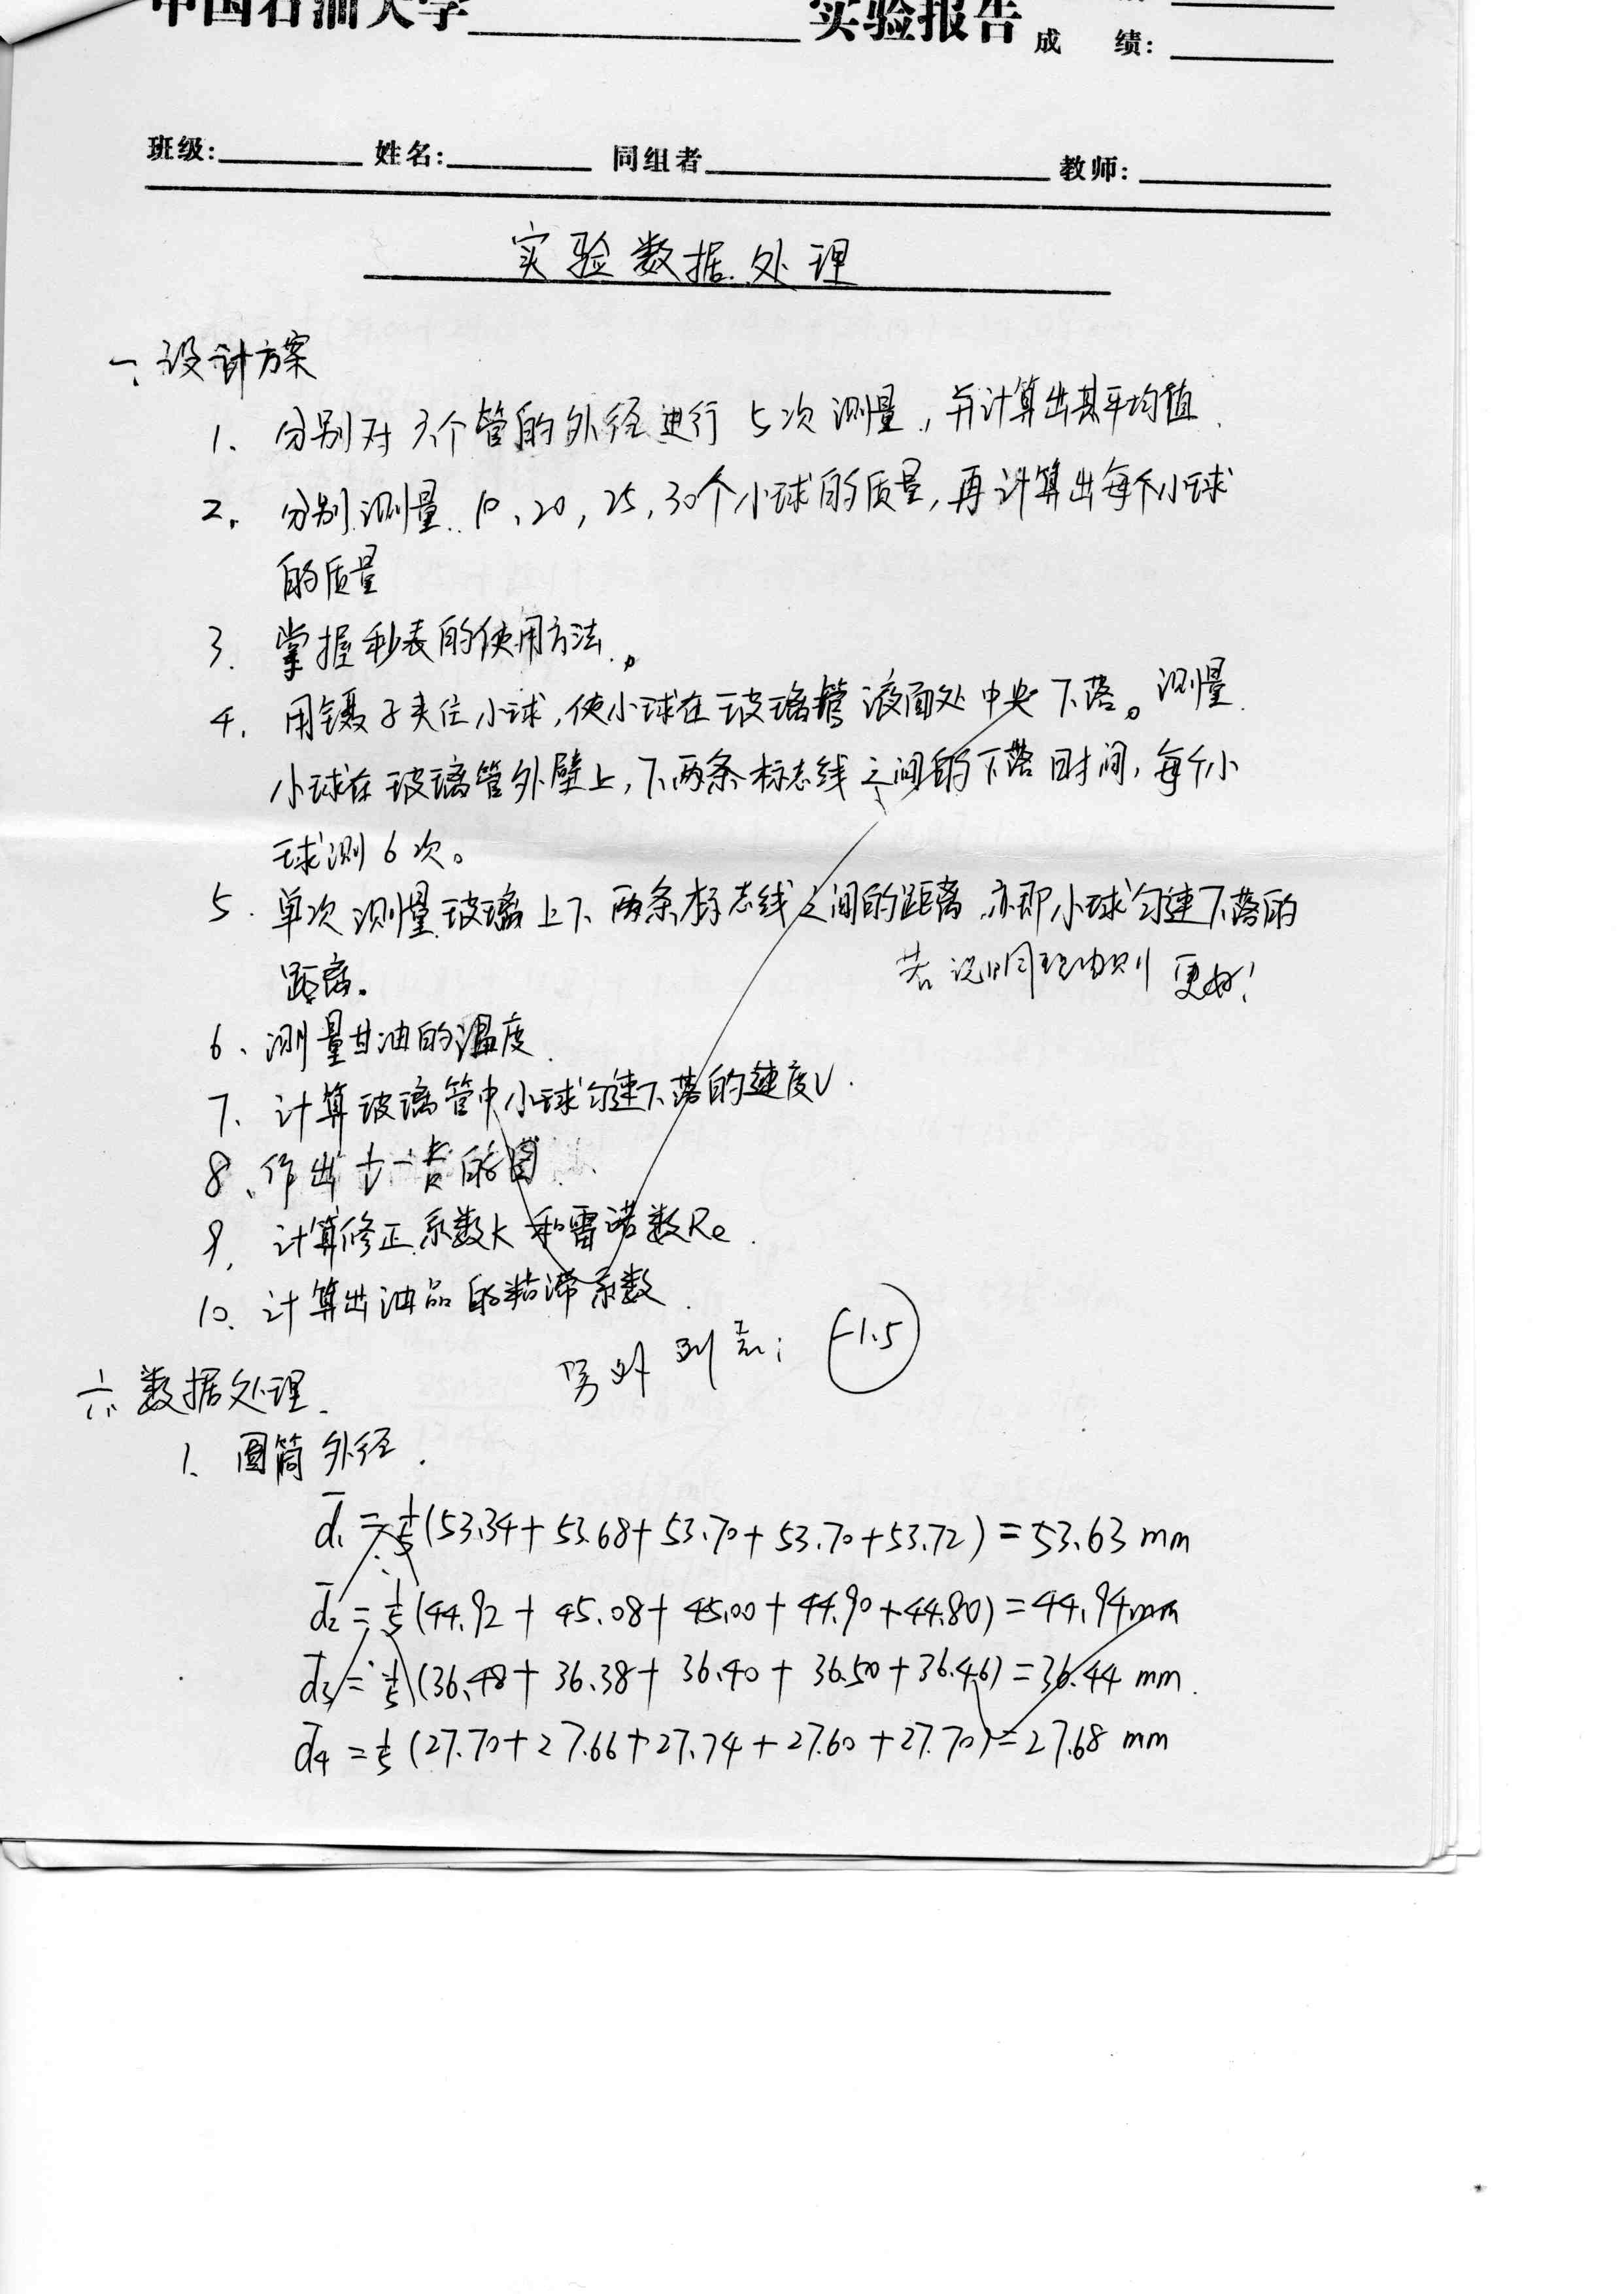 中国石油大学 实验报告 成 绩:
班级: 姓名: 同组者 教师:
实验数据处理
一、设计方案
1、分别对3个管的外径进行5次测量,并计算出其平均值.
2、分别测量10、20,25,30个小球的质量,再计算出每个小球
的质量
3.掌握秒表的使用方法。
4.用镊子夹住小球,使小球在玻璃管液面处中央下落。测量
小球在玻璃管外壁上,下两条标志线之间的下落时间,每个小
球测6次。
5.单次测量玻璃上下两条标志线之间的距离,亦即小球匀速下落的
距离.
若说明理由则更好!
6、测量甘油的温度.
7、计算玻璃管中小球匀速下落的速度v.
8、作出 的图.
9.计算修正系数k和雷诺数Re.
10.计算出油品的粘滞系数.
列表: -1.5
六.数据处理.
1、圆筒外径.
d̄₁ = 1/5(53.34+53.68+53.70+53.70+53.72)=53.63 mm
d̄₂ = 1/5(44.92+45.08+45.00+44.90+44.80)=44.94mm
d̄₃ = 1/5(36.48+36.38+36.40+36.50+36.46)=36.44 mm.
d̄₄ = 1/5(27.70+27.66+27.74+27.60+27.70)=27.68 mm